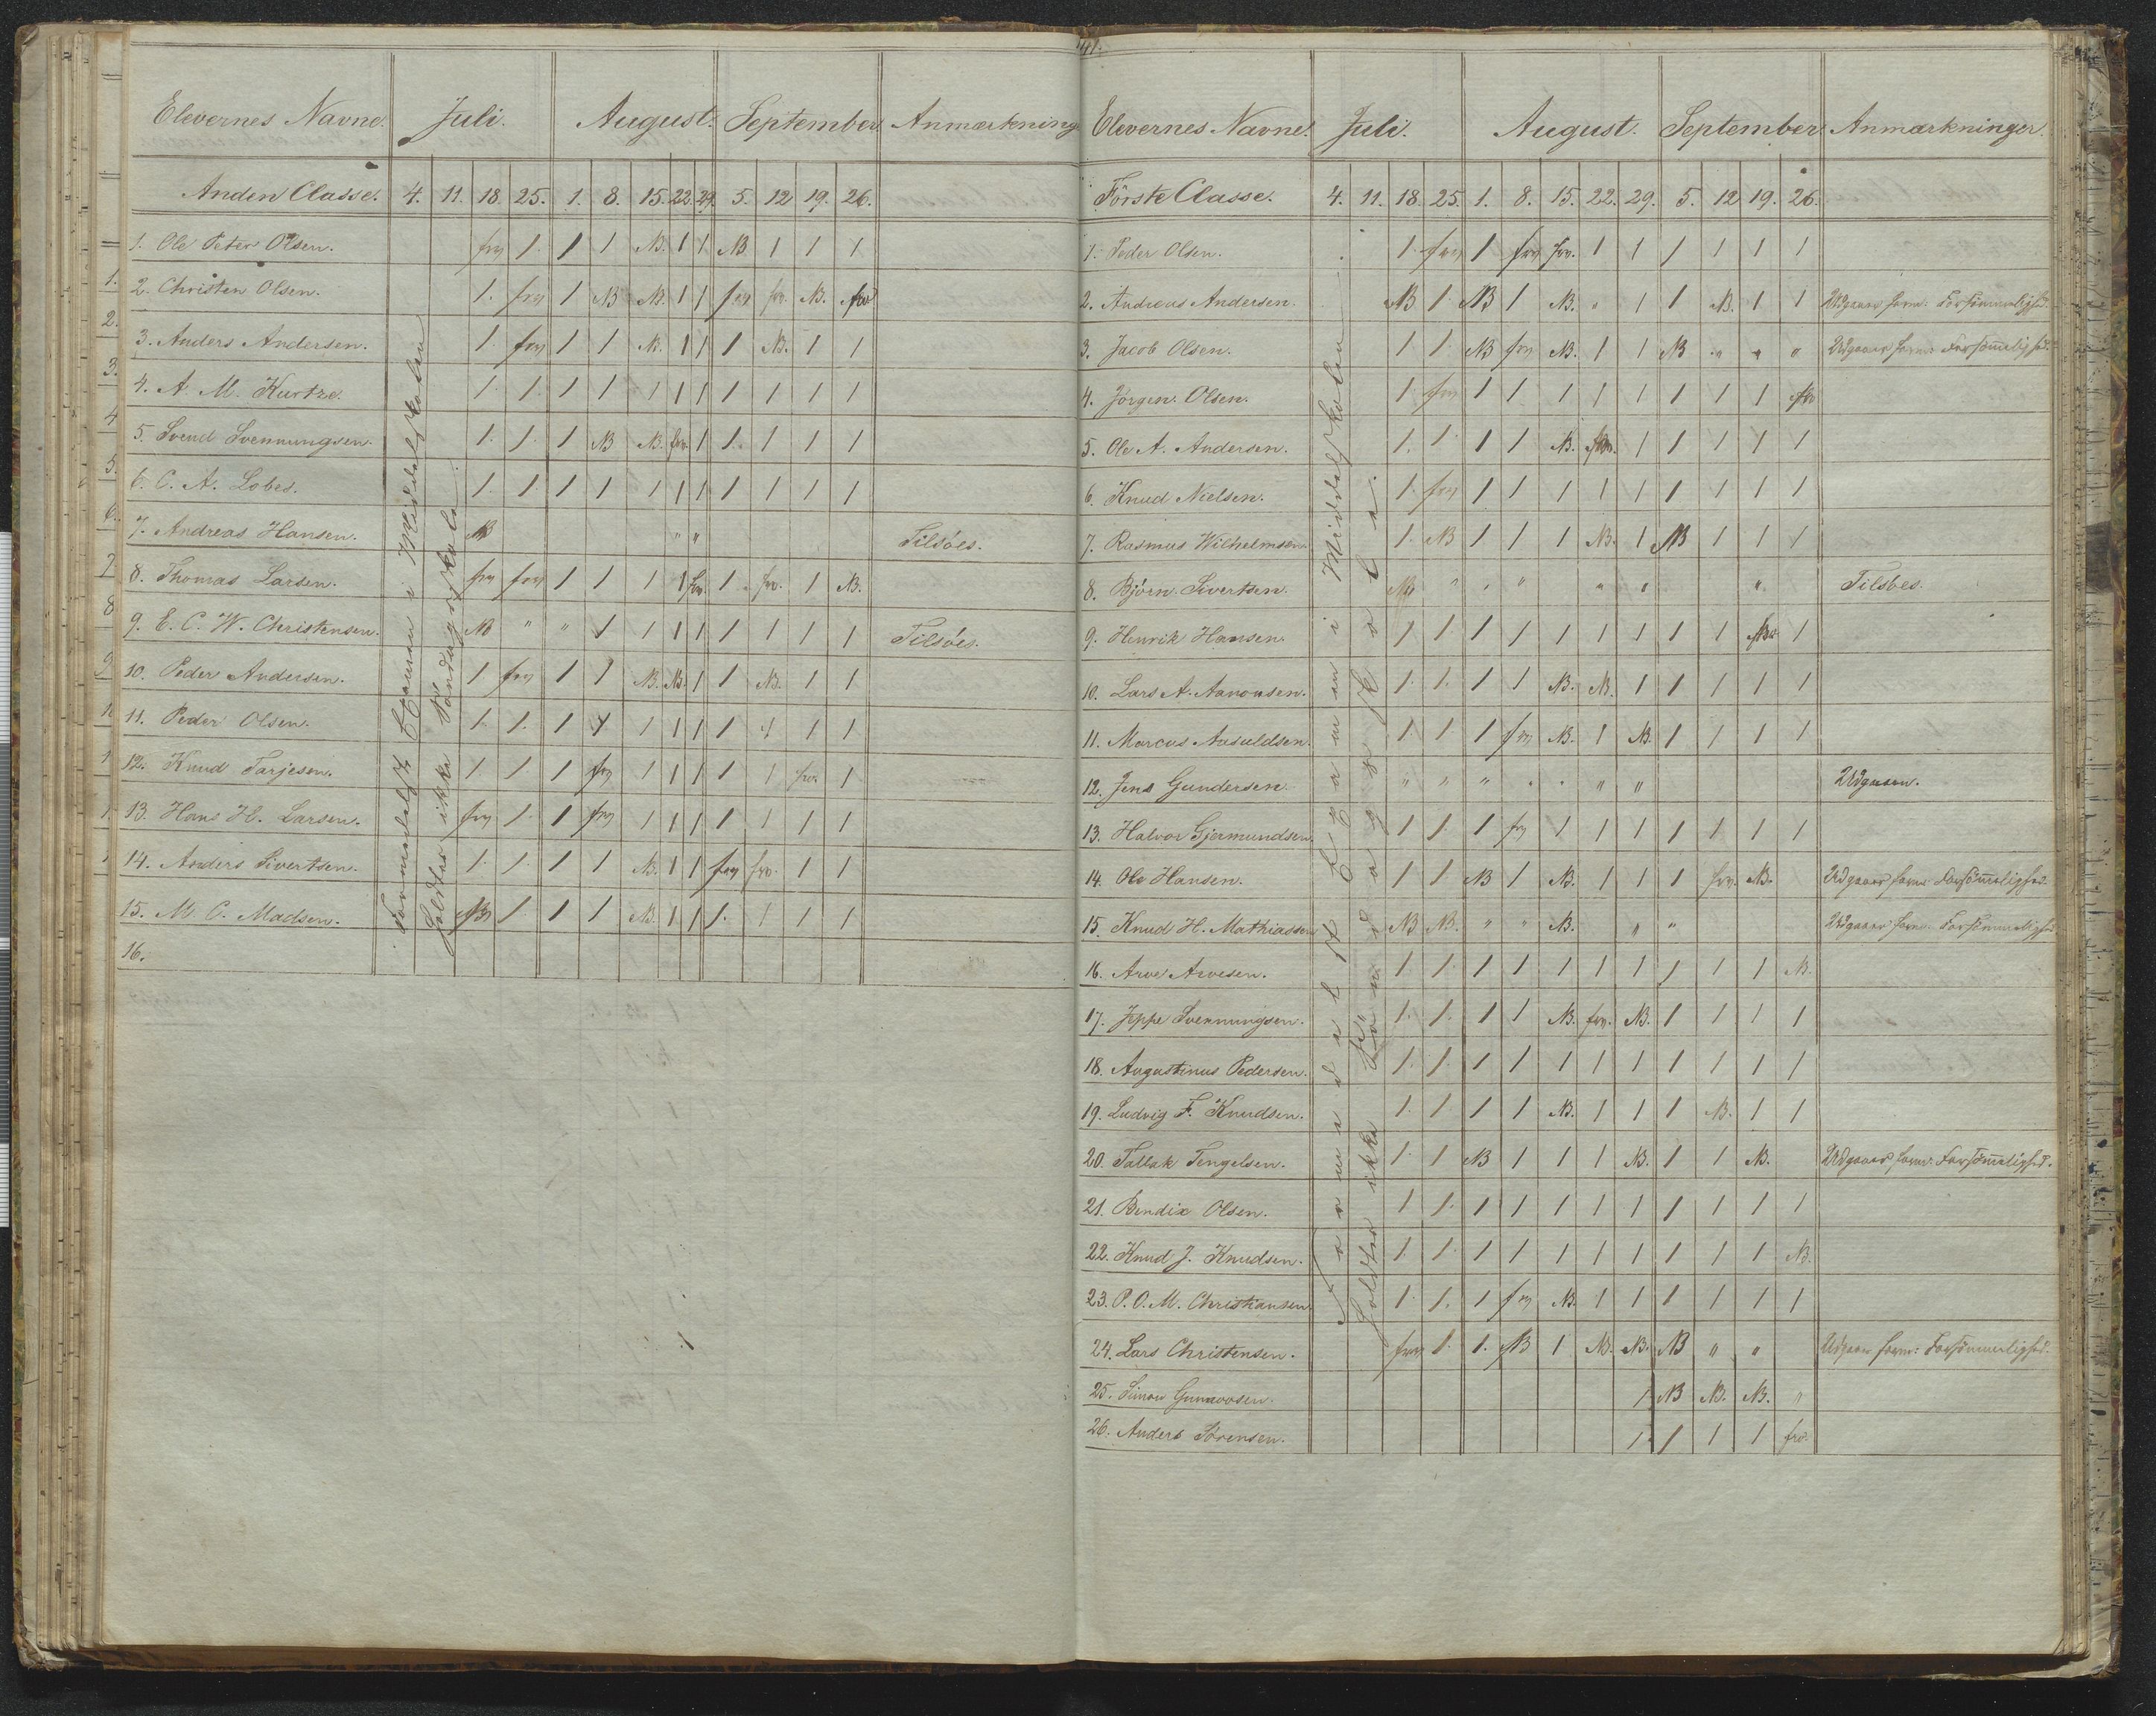 Elevernes Navne. Juli. August. September. Anmærkning
Anden Classe. 4. 11. 18. 25. 1. 8. 15. 22. 29. 5. 12 19. 26.
1. Ole Peter Olsen. frv 1. 1 1 NB. 1 1 NB 1 1 1
2. Christen Olsen. 1. frv 1 NB NB. 1 1 frv frv. NB. frv
3. Anders Andersen. 1. frv 1 1 NB. 1 1 1 NB. 1 1
4. A. M. Kurtze. 1. 1. 1 1 1 1 1 1 1 1 1
5. Svend Svennungsen. 1. 1. 1 NB NB. frv. 1 1. 1 1 1
6. C. A. Lobes. 1. 1. 1 1 1 1 1 1 1 1 1
7. Andreas Hansen. NB " " Tilsöes.
8. Thomas Larsen. frv frv 1 1 1 1 frv. 1 frv. 1 NB.
9. E. C. W. Christensen. NB " " 1 1 1 1 1 1 1 1 Tilsöes.
10. Peder Andersen. 1 frv 1 1 NB. NB. 1 1 NB. 1 1
11. Peder Olsen. 1. 1. 1 1 1 1 1 1 1 1 1
12. Knud Tarjesen. 1 1 1 frv 1 1 1 1 1 frv. 1
13. Hans H. Larsen. frv 1. 1 frv 1 1 1 1 1 1 1
14. Anders Sivertsen. 1. 1. 1 1 NB. 1 1 frv frv. 1 1
15. M. C. Madsen. NB 1 1 1 NB. 1 1 1. 1 1 1
16.
Formedelst Examen i Middelskolen
holdtes ikke Söndagsskole.
Elevernes Navne. Juli. August. September Anmærkninger.
Förste Classe. 4. 11. 18. 25. 1. 8. 15. 22. 29. 5. 12 19. 26.
1. Peder Olsen. 1. frv 1 frv frv. 1 1 1 1 1 1
2. Andreas Andersen. NB 1. NB 1 NB. " 1 1 NB. 1 1 Udgaaer form. Forsömmelighed.
3. Jacob Olsen. 1 1 NB frv NB. 1 1 NB " " " Udgaaer form. Forsömelighed.
4. Jörgen Olsen. 1 frv 1 1 1 1 1 1 1 1 frv
5. Ole A. Andersen. 1. 1. 1 1 NB. frv. 1 1 1 1 1
6. Knud Nielsen. 1. frv 1 1 1 1 1 1 1 1 1
7. Rasmus Wilhelmsen. 1. NB 1 1 1 NB. 1 NB 1 1 1
8. Björn Sivertsen. NB " " " " " " Tilsöes.
9. Henrik Hansen. 1 1 1 1 1 1 1 1 1 frv 1
10. Lars A. Aanonsen. 1. 1. 1 1 NB. NB. 1 1 1 1 1
11. Marcus Aasuldsen. 1 1 1 frv NB. 1 NB. 1 1 1 1
12. Jens Gundersen. " " " " " " " Udgaaen.
13. Halvor Gjermundsen. 1 1. 1 frv 1 1 1 1 1 1 1
14. Ole Hansen. 1 1 NB 1 NB. 1 1 1 frv. NB. Udgaaer form. Forsömelighed.
15. Knud H. Mathiassen NB NB. " " NB. " " Udgaaer form. Forsömmelighed.
16. Arve Arvesen. 1 1. 1 1 1 1 1 1 1 1 NB.
17. Jeppe Svennungsen. 1. 1. 1 1 NB. frv. NB. 1 1 1 1
18. Augustinus Pedersen. 1. 1. 1 1 1 1 1 1 1 1 1
19. Ludvig F. Knudsen. 1. 1 1 1 NB. 1 1 1 NB. 1 1
20. Tallak Tengelsen. 1. 1 NB 1 1 1 NB. 1 1 NB. Udgaaer form. Forsömelighed.
21. Bendix Olsen. 1 1. 1 1 1 1 1 1 1 1 1
22. Knud J. Knudsen. 1. 1. 1 1 1 1 1 1 1 1 NB.
23. P. O. M. Christiansen. 1. 1. 1 frv NB. 1 1 1 1 1 1
24. Lars Christensen. frv 1. 1. NB 1 NB. NB. NB " " Udgaaer form. Forsömmelighed.
25. Simon Gunnvosen. 1 NB NB. NB. "
26. Anders Sörensen. 1. 1 1 1 frv.
Formedelst Examen i Middelskolen
holdtes ikke Söndagsskole.